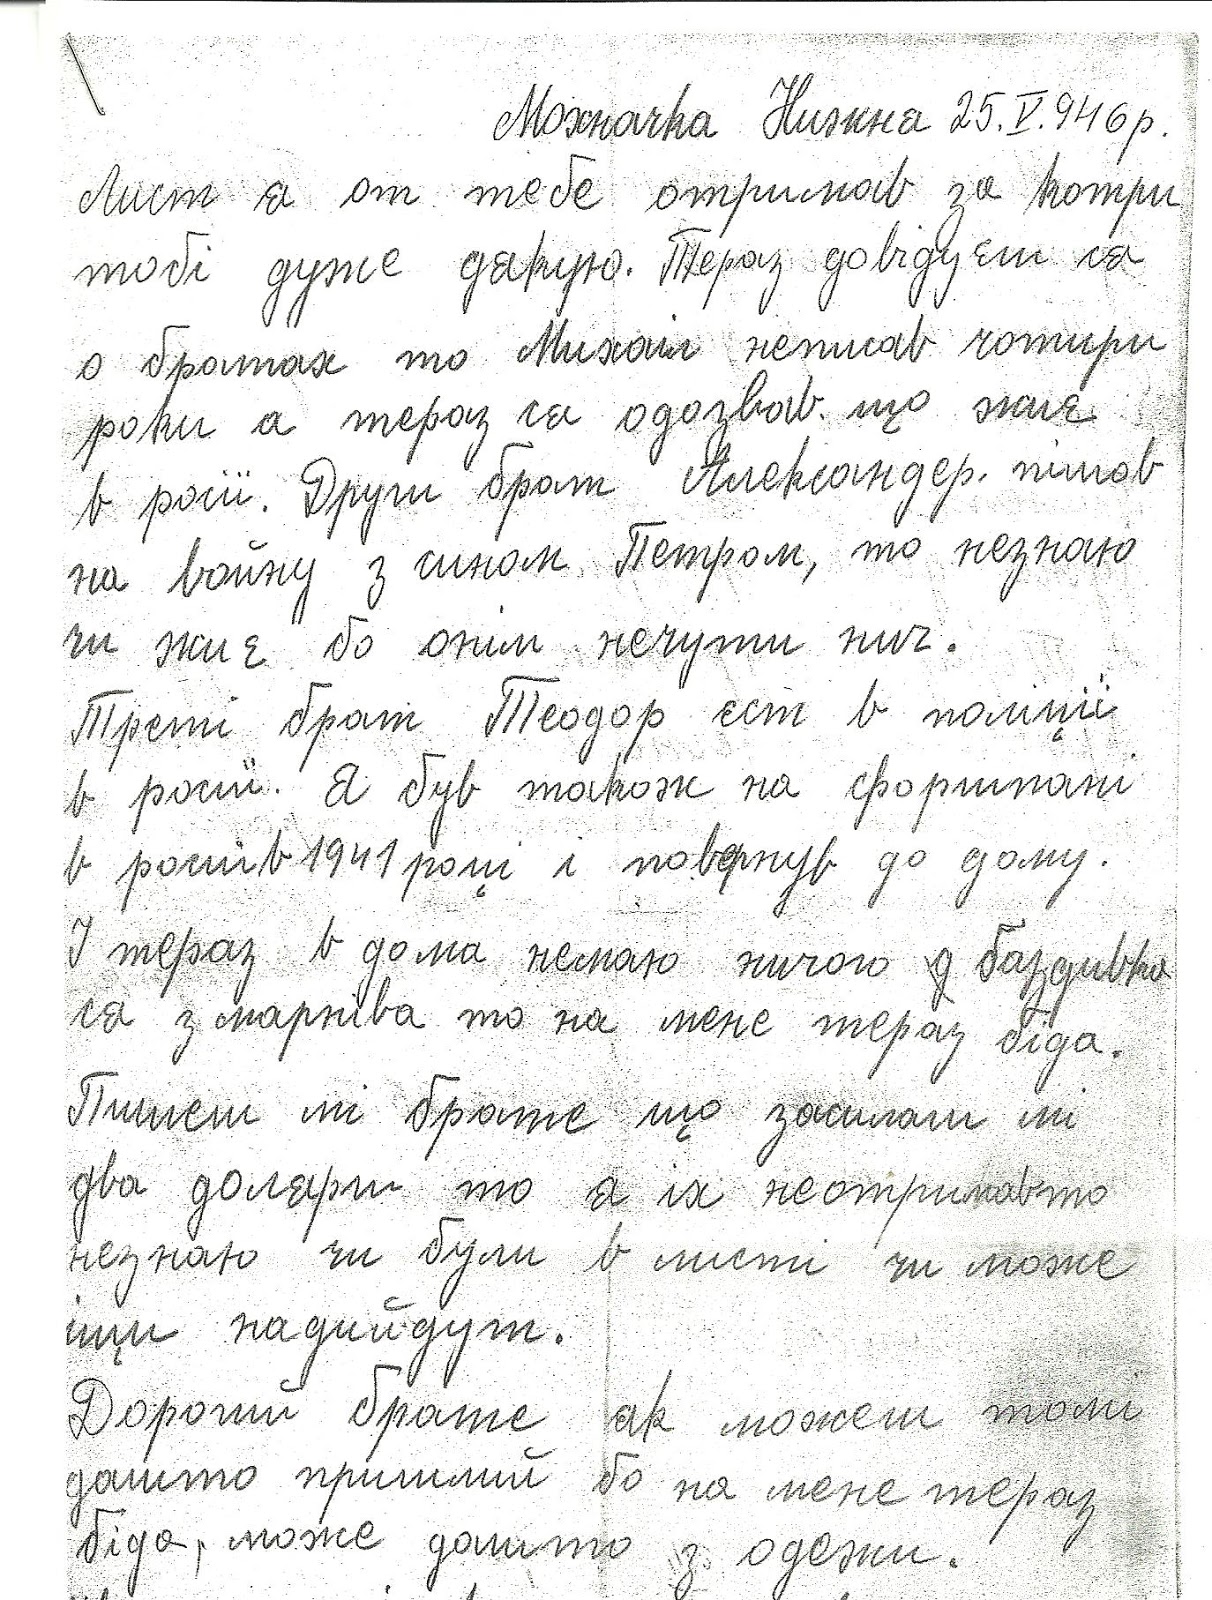 Мохначка Нижня 25.V.946р.
Лист я от тебе отримав за котри
тобі дуже дякую. Тераз довідуєш ся
о братах то Михаіл неписав чотири
роки а тераз ся одозвав. що жиє
в росіі. Други брат Александер. пішов
на войну з сином Петром, то незнаю
чи жиє бо онім нечути нич.
Треті брат Теодор єст в поліціі
в росиі. Я був також на форшпані
в росиі в 1941 році і повернув до дому.
І тераз в дома немаю ничого
ся змарнiва то на мене тераз біда.
Пишеш мі брате що засилаш мі
два доляри то я іх неотримавто
незнаю чи були в листі чи може
іщи надийдут.
Дорогий брате як можеш томі
дашто пришлий бо на мене тераз
біда, може дашто з одежи.